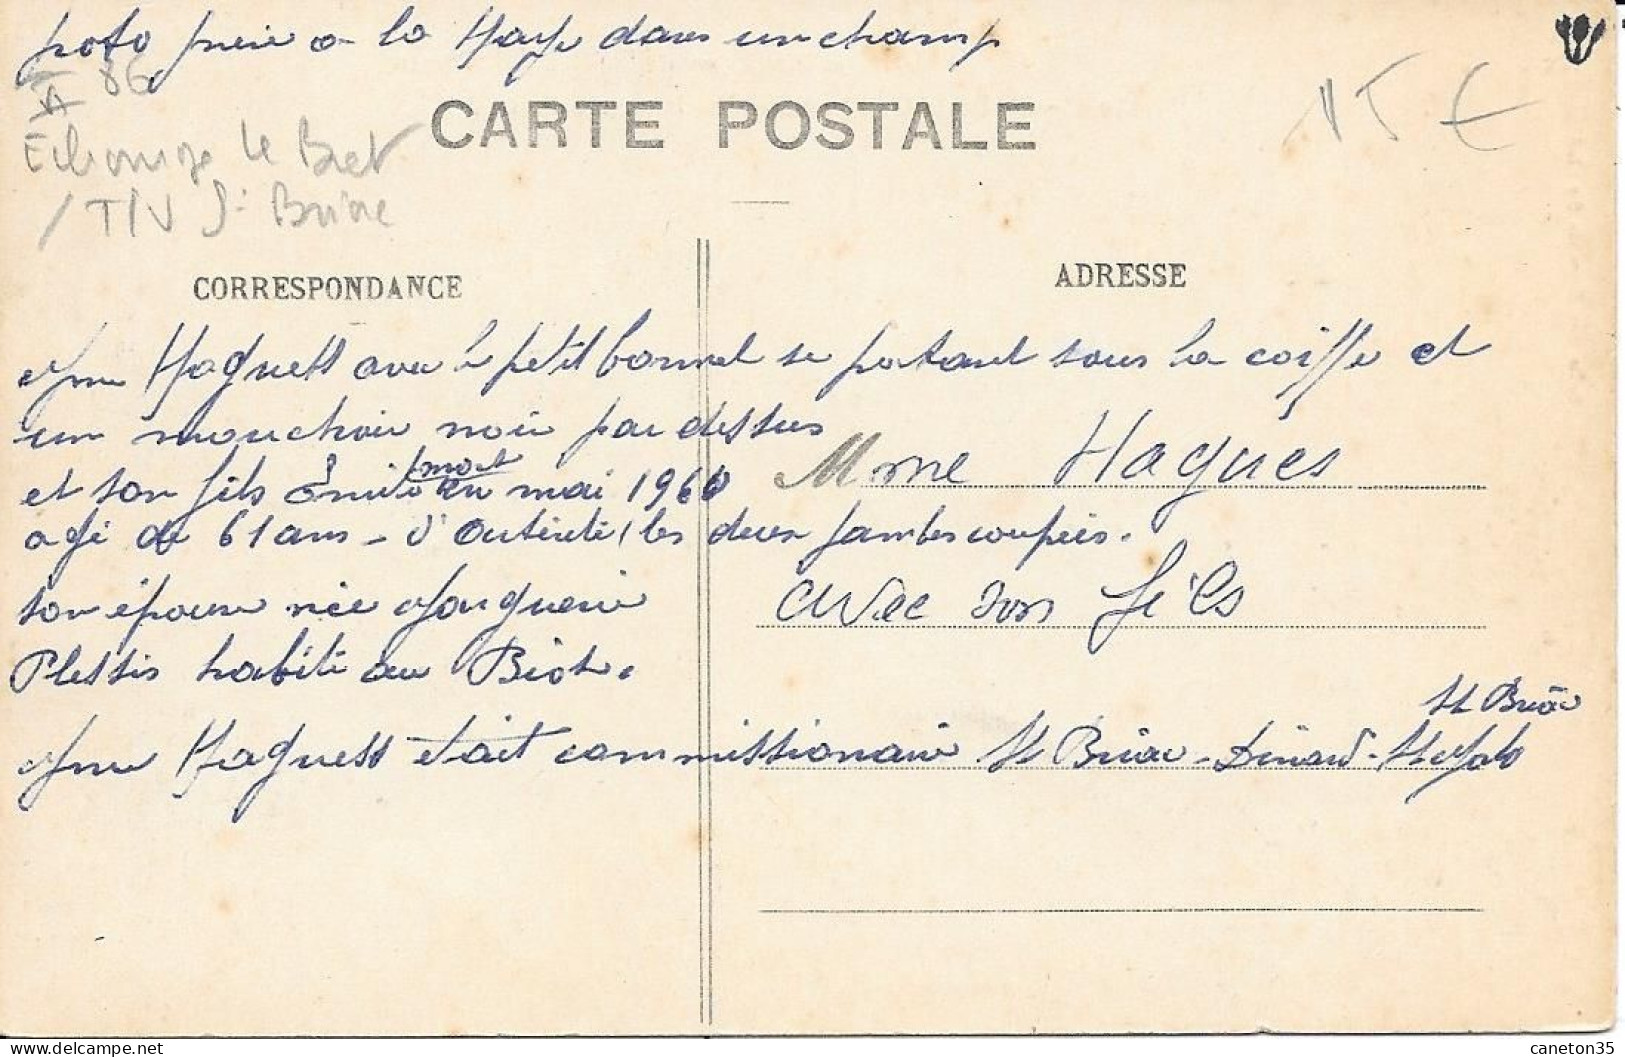 poto prie a la Haye dans un champ
86
15 €
CARTE POSTALE
Echange Le Bret
/ TIV St Briac
CORRESPONDANCE
ADRESSE
Mme Haguett avec le petit bonnet se portant sous la coiffe et
un mouchoir noir par dessus
Mme Hagues
et son fils Émile mort en mai 1960
agé de 61 ans - d'Arterite (les deux jambes coupées.
avec son fils
son épouse née Marguerie
Plessis habite au Biot.
St Briac
Mme Haguett était commissionaire St Briac - Dinard - St Malo
caneton35